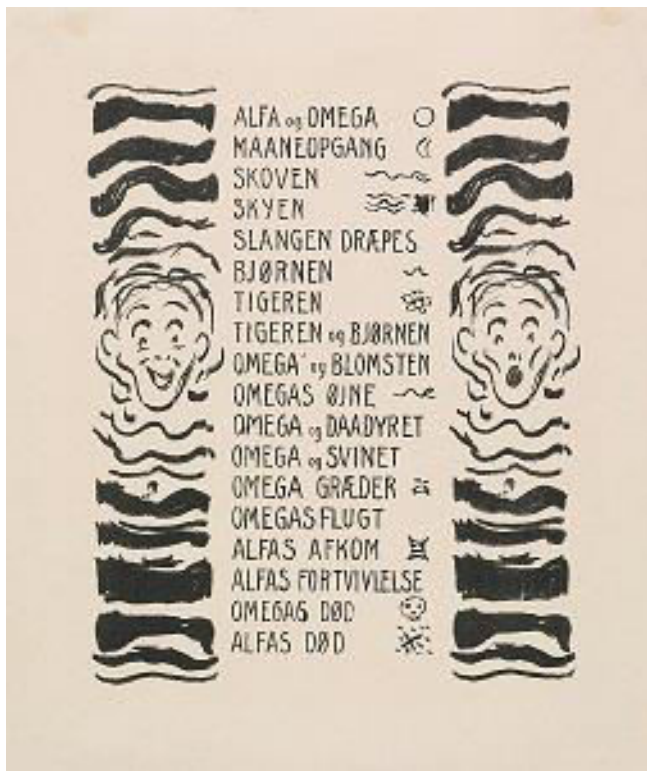 ALFA og OMEGA
MAANEOPGANG
SKOVEN
SKYEN
SLANGEN DRÆPES
BJØRNEN
TIGEREN
TIGEREN og BJØRNEN
OMEGA og BLOMSTEN
OMEGAS ØJNE
OMEGA og DAADYRET
OMEGA og SVINET
OMEGA GRÆDER
OMEGAS FLUGT
ALFAS AFKOM
ALFAS FORTVIVLELSE
OMEGAS DØD
ALFAS DØD